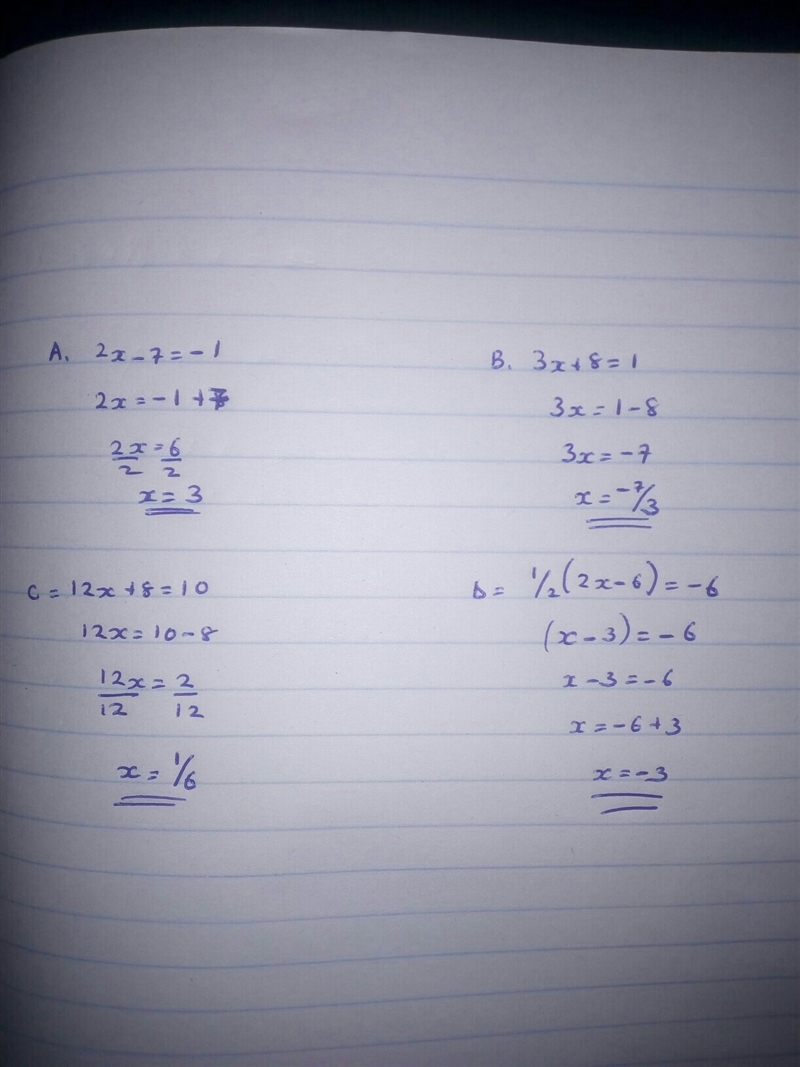 A. 2x - 7 = - 1
2x = - 1 + 7
2x = 6
2 2
x = 3
B. 3x + 8 = 1
3x = 1 - 8
3x = - 7
x = -7/3
C = 12x + 8 = 10
12x = 10 - 8
12x = 2
12 12
x = 1/6
D = 1/2 (2x - 6) = - 6
(x - 3) = - 6
x - 3 = - 6
x = - 6 + 3
x = - 3